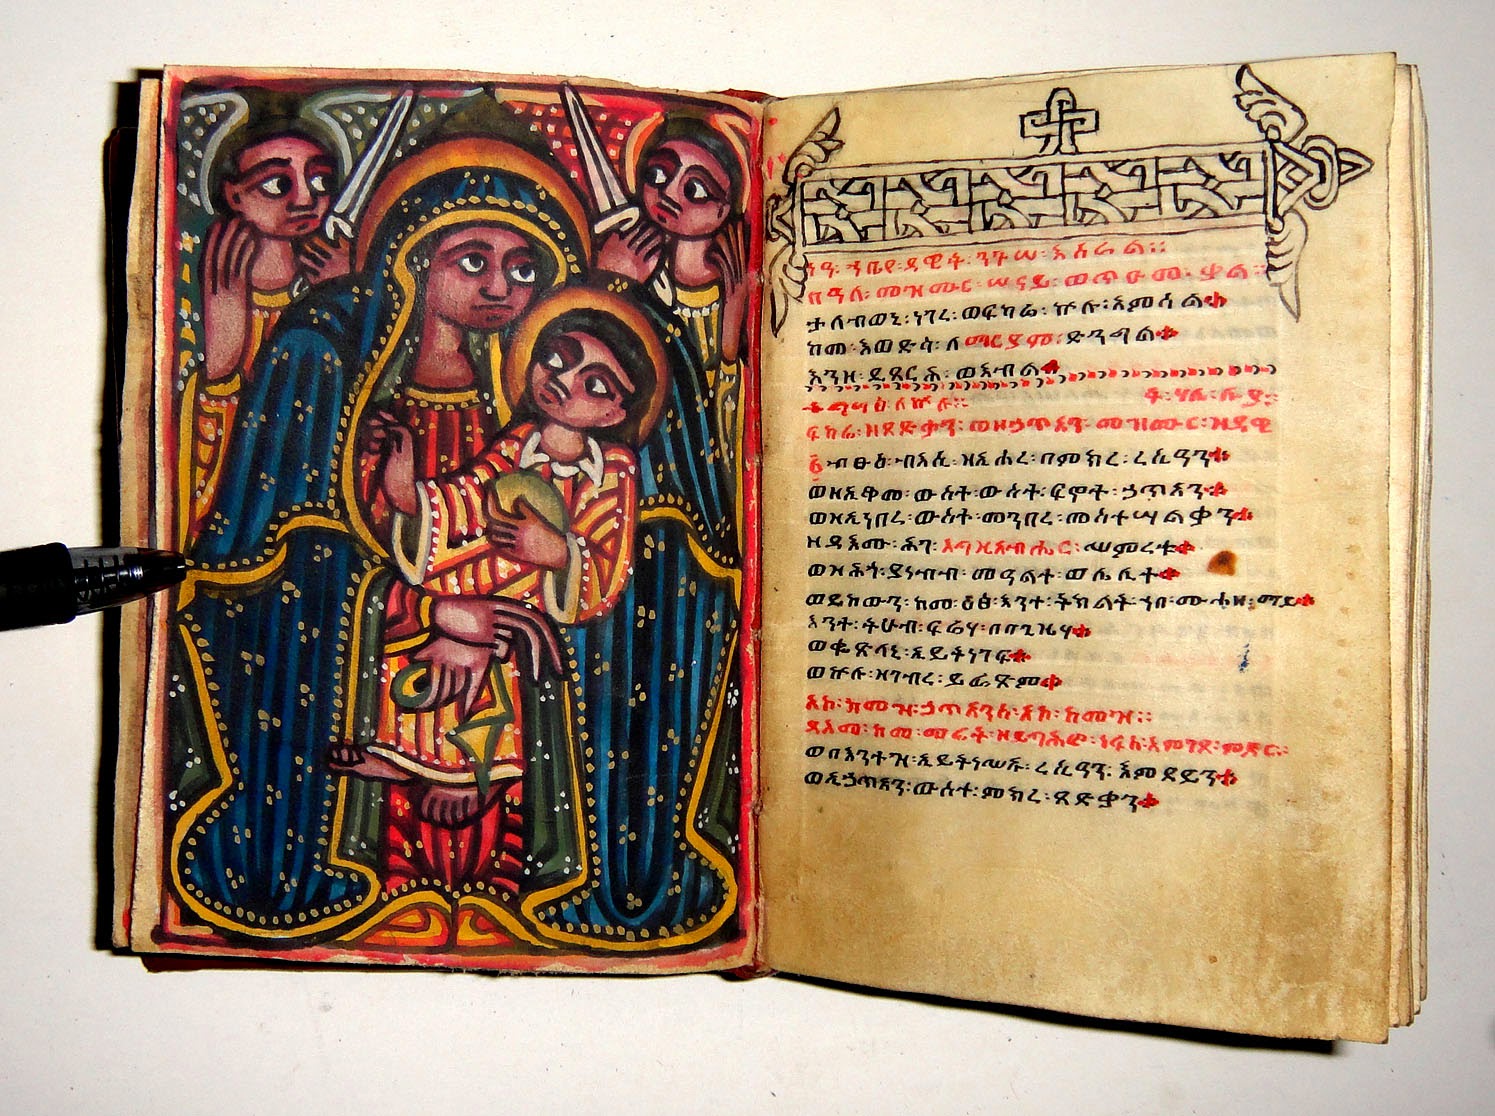 ነዓ፡ ኀቤየ፡ ዳዊት፡ ንጉሠ፡ እስራኤል።
በዓለ፡ መዝሙር፡ ሠናይ፡ ወጥዑመ፡ ቃል፡
ታለብወኒ፡ ነገረ፡ ወፍካሬ፡ ኵሉ፡ አምሳል።
ከመ፡ እወድሳ፡ ለማርያም፡ ድንግል።
እንዘ፡ ይጸርሕ፡ ወእብል።
ለኵሉ። ፍ፡ ሃሌ፡ ሉያ።
ፍካሬ፡ ዘጻድቃን፡ ወዘኃጥኣን፡ መዝሙር፡ ዘዳዊ
፩ብፁዕ፡ ብእሲ፡ ዘኢሐረ፡ በምክረ፡ ረሲዓን።
ወዘኢቆመ፡ ውስተ፡ ውስተ፡ ፍኖተ፡ ኃጥኣን።
ወዘኢነበረ፡ ውስተ፡ መንበረ፡ መስተሣልቃን።
ዘዳእሙ፡ ሕገ፡ እግዚአብሔር፡ ሥምረቱ።
ወዝሕጎ፡ ያነብብ፡ መዓልተ፡ ወሌሊተ።
ወይከውን፡ ከመ፡ ዕፅ፡ እንተ፡ ትክልት፡ ኀበ፡ ሙሐዘ፡ ማይ።
እንተ፡ ትሁብ፡ ፍሬሃ፡ በበጊዜሃ።
ወቈጽላኒ፡ ኢይትነገፍ።
ወኵሉ፡ ዘገብረ፡ ይፌጽም።
አኮ፡ ከመዝ፡ ኃጥኣንሰ፡ አኮ፡ ከመዝ።
ዳእሙ፡ ከመ፡ መሬት፡ ዘይግሕፎ፡ ነፋስ፡ እምገጸ፡ ምድር።
ወበእንተዝ፡ ኢይትነሥኡ፡ ረሲዓን፡ እምደይን።
ወኢኃጥኣን፡ ውስተ፡ ምክረ፡ ጻድቃን።